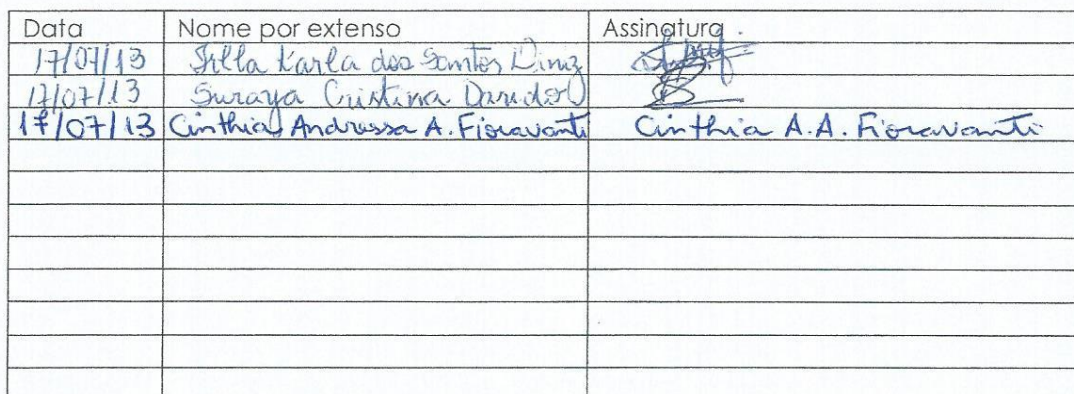 Data Nome por extenso Assinatura
17/07/13 Karla dos Santos Diniz
17/07/13 Suraya Cristina Darido
17/07/13 Cinthia Andressa A. Fioravanti Cinthia A.A. Fioravanti